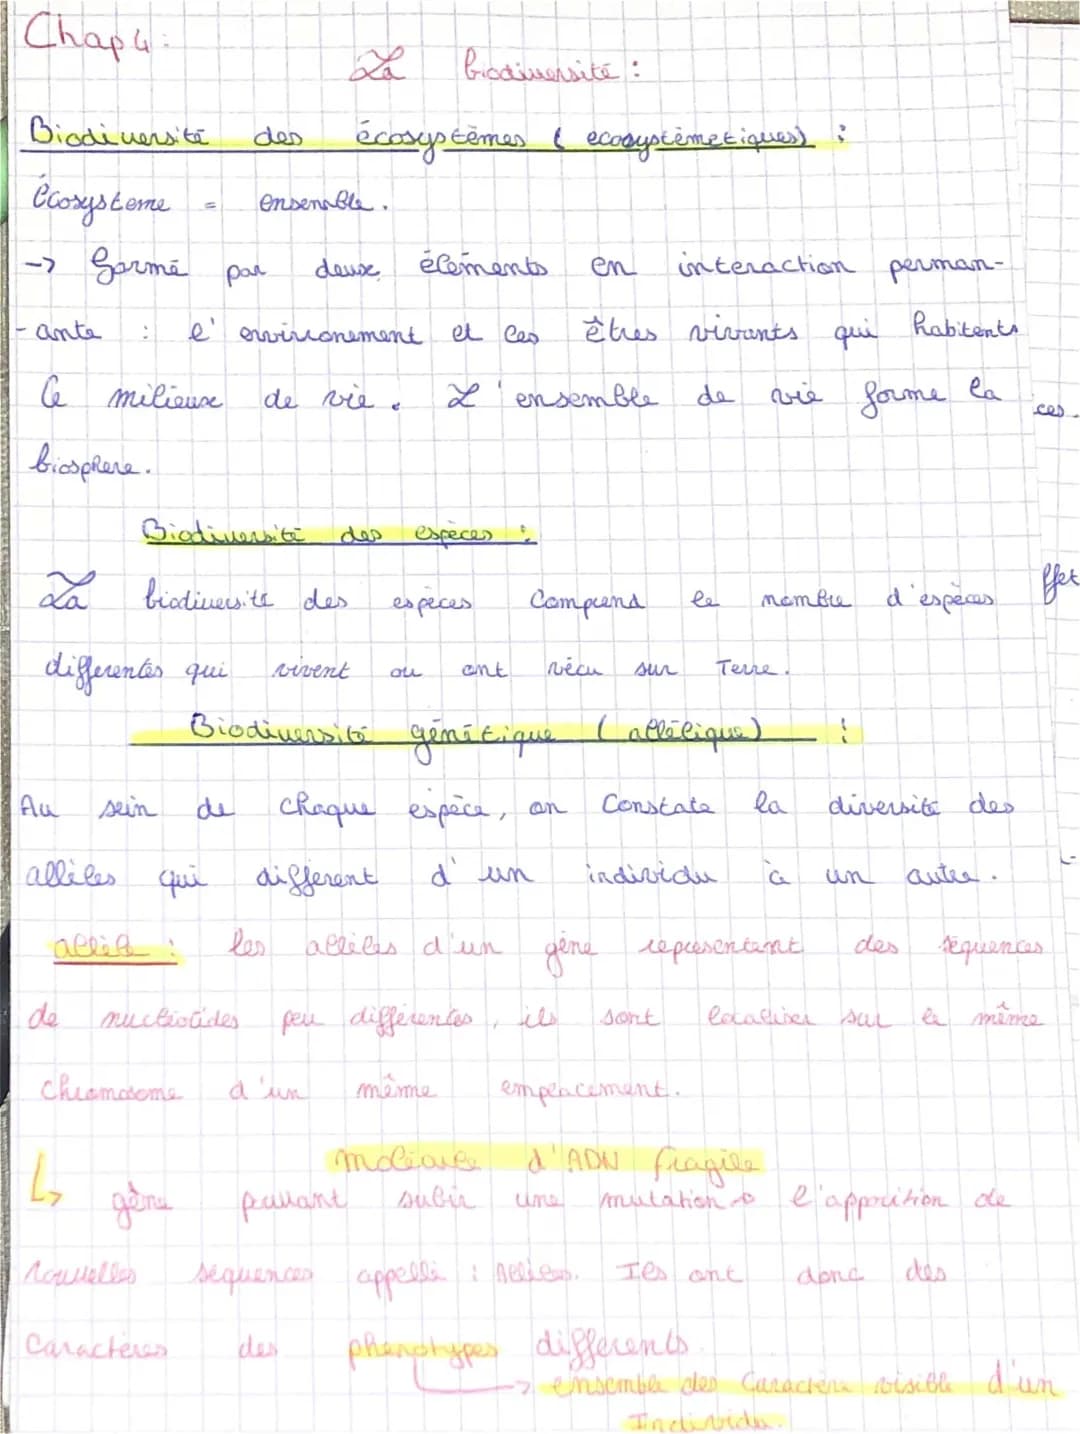 Chap 4:
La biodiversité :
Biodiversité des écosystèmes ( ecosystèmetiques) :
écosysteme = ensemble.
-> formé par deux éléments en interaction perman-
-ante : l' environement et les êtres vivants qui habitents
ce milieux de vie. L'ensemble de vie forme la
ces.
biosphere.
Biodiversité des espèces :
La biodiversité des espèces comprend le nombre d'espèces
ffet
differentes qui vivent ou ont vécu sur Terre.
Biodiversité génétique ( allélique) :
Au sein de chaque espèce, on constate la diversité des
allèles qui different d'un individu à un autre.
allèle : les allèles d'un gène representent des séquences
de nucléotides peu différentes, ils sont localiser sur le même
chromosome d'un même emplacement.
molécule d'ADN fragile
gène pouvant subir une mutation -> l'apparition de
nouvelles séquences appellé : Allèles. Ils ont donc des
caractères des phenotypes differents.
-> ensemble des caractère visible d'un
Individu.